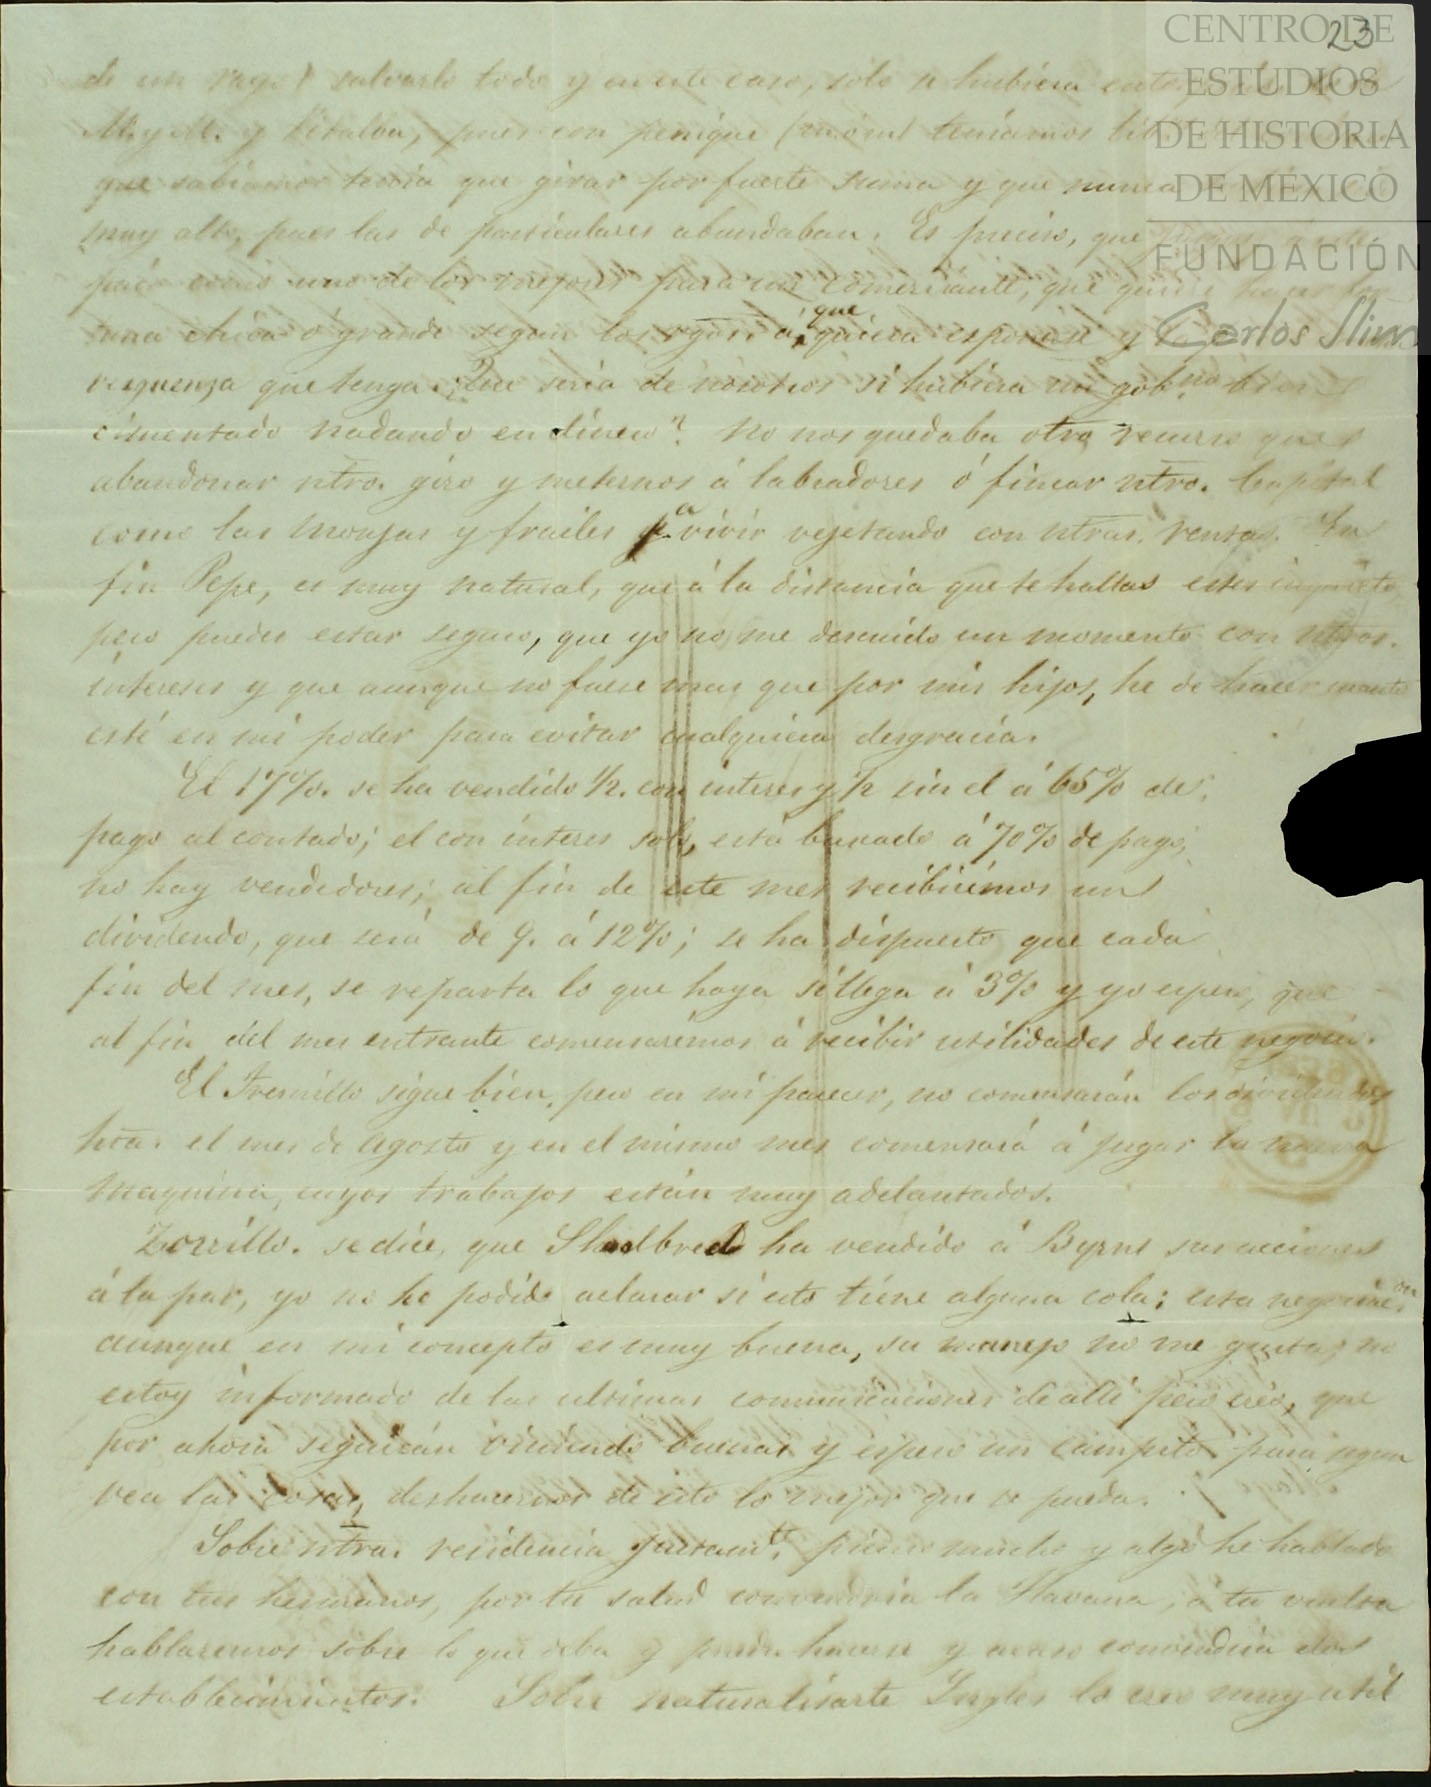 23
CENTRO DE
ESTUDIOS
DE HISTORIA
DE MÉXICO
FUNDACIÓN
Carlos Slim
de un rayo) salvarlo todo y en este caso, solo se hubiera
M. y M. y pues con penique (m. ó m.) teniamos
que sabiamos tenia que girar por fuerte suma y que nunca
muy alto, pues las de particulares abundaban. Es preciso, que
pais como uno de los mejores para un comerciante, que quiere hacer for
tuna chica ó grande segun los rgos. á que quiera esponerse y la
verguenza que tenga. ¿Que seria de nosotros si hubiera un gob.no bien
cimentado nadando en dinero? No nos quedaba otro recurso que
abandonar ntro. giro y meternos á labradores ó fincar ntro. Capital
como las monjas y frailes p.a vivir vejetando con ntras. rentas. En
fin Pepe, es muy natural, que á la distancia que te hallas estes inquieto
pero puedes estar seguro, que yo no me descuido un momento con ntros.
intereses y que aunque no fuese mas que por mis hijos, he de hacer cuanto
esté en mi poder para evitar cualquiera desgracia.
El 17%. se ha vendido 1/2. con interes y 1/2 sin el á 65% de
pago al contado; el con interes solo, está buscado á 70% de pago,
no hay vendedores; al fin de este mes recibiremos un
dividendo, que será de 9. á 12%; se ha dispuesto que cada
fin del mes, se reparta lo que haya si llega á 3% y yo espero, que
al fin del mes entrante comensaremos á recibir utilidades de este negocio.
El Fresnillo sigue bien, pero en mi parecer, no comensarán los dividendos
hta. el mes de Agosto y en el mismo mes comensará á jugar la nueva
maquina, cuyos trabajos están muy adelantados.
Zorrillo. se dice, que Shedbred ha vendido á Byrns sus acciones
á la par, yo no he podido aclarar si esto tiene alguna cola; esta negociac.on
aunque en mi concepto es muy buena, su manejo no me gusta, no
estoy informado de las ultimas comunicaciones de alli pero creo, que
por ahora seguirán viniendo buenas y espero un campito para segun
vea las cosas, deshacernos de esto lo mejor que se pueda.
Sobre ntra. residencia pienso mucho y algo he hablado
con tus hermanos, por tu salud convendria la Havana, á tu vuelta
hablaremos sobre lo que deba y pueda hacerse y acaso convendria dos
establecimientos. Sobre naturalisarte Ingles lo creo muy util